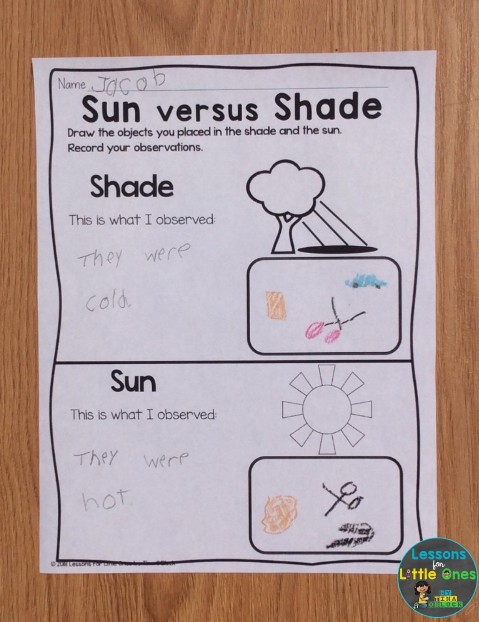 Name Jacob
Sun versus Shade
Draw the objects you placed in the shade and the sun.
Record your observations.
Shade
This is what I observed:
They were
cold.
Sun
This is what I observed:
They were
hot
© 2018 Lessons For Little Ones by Tina
Lessons
for
Little Ones
BY
TINA
O'BLOCK